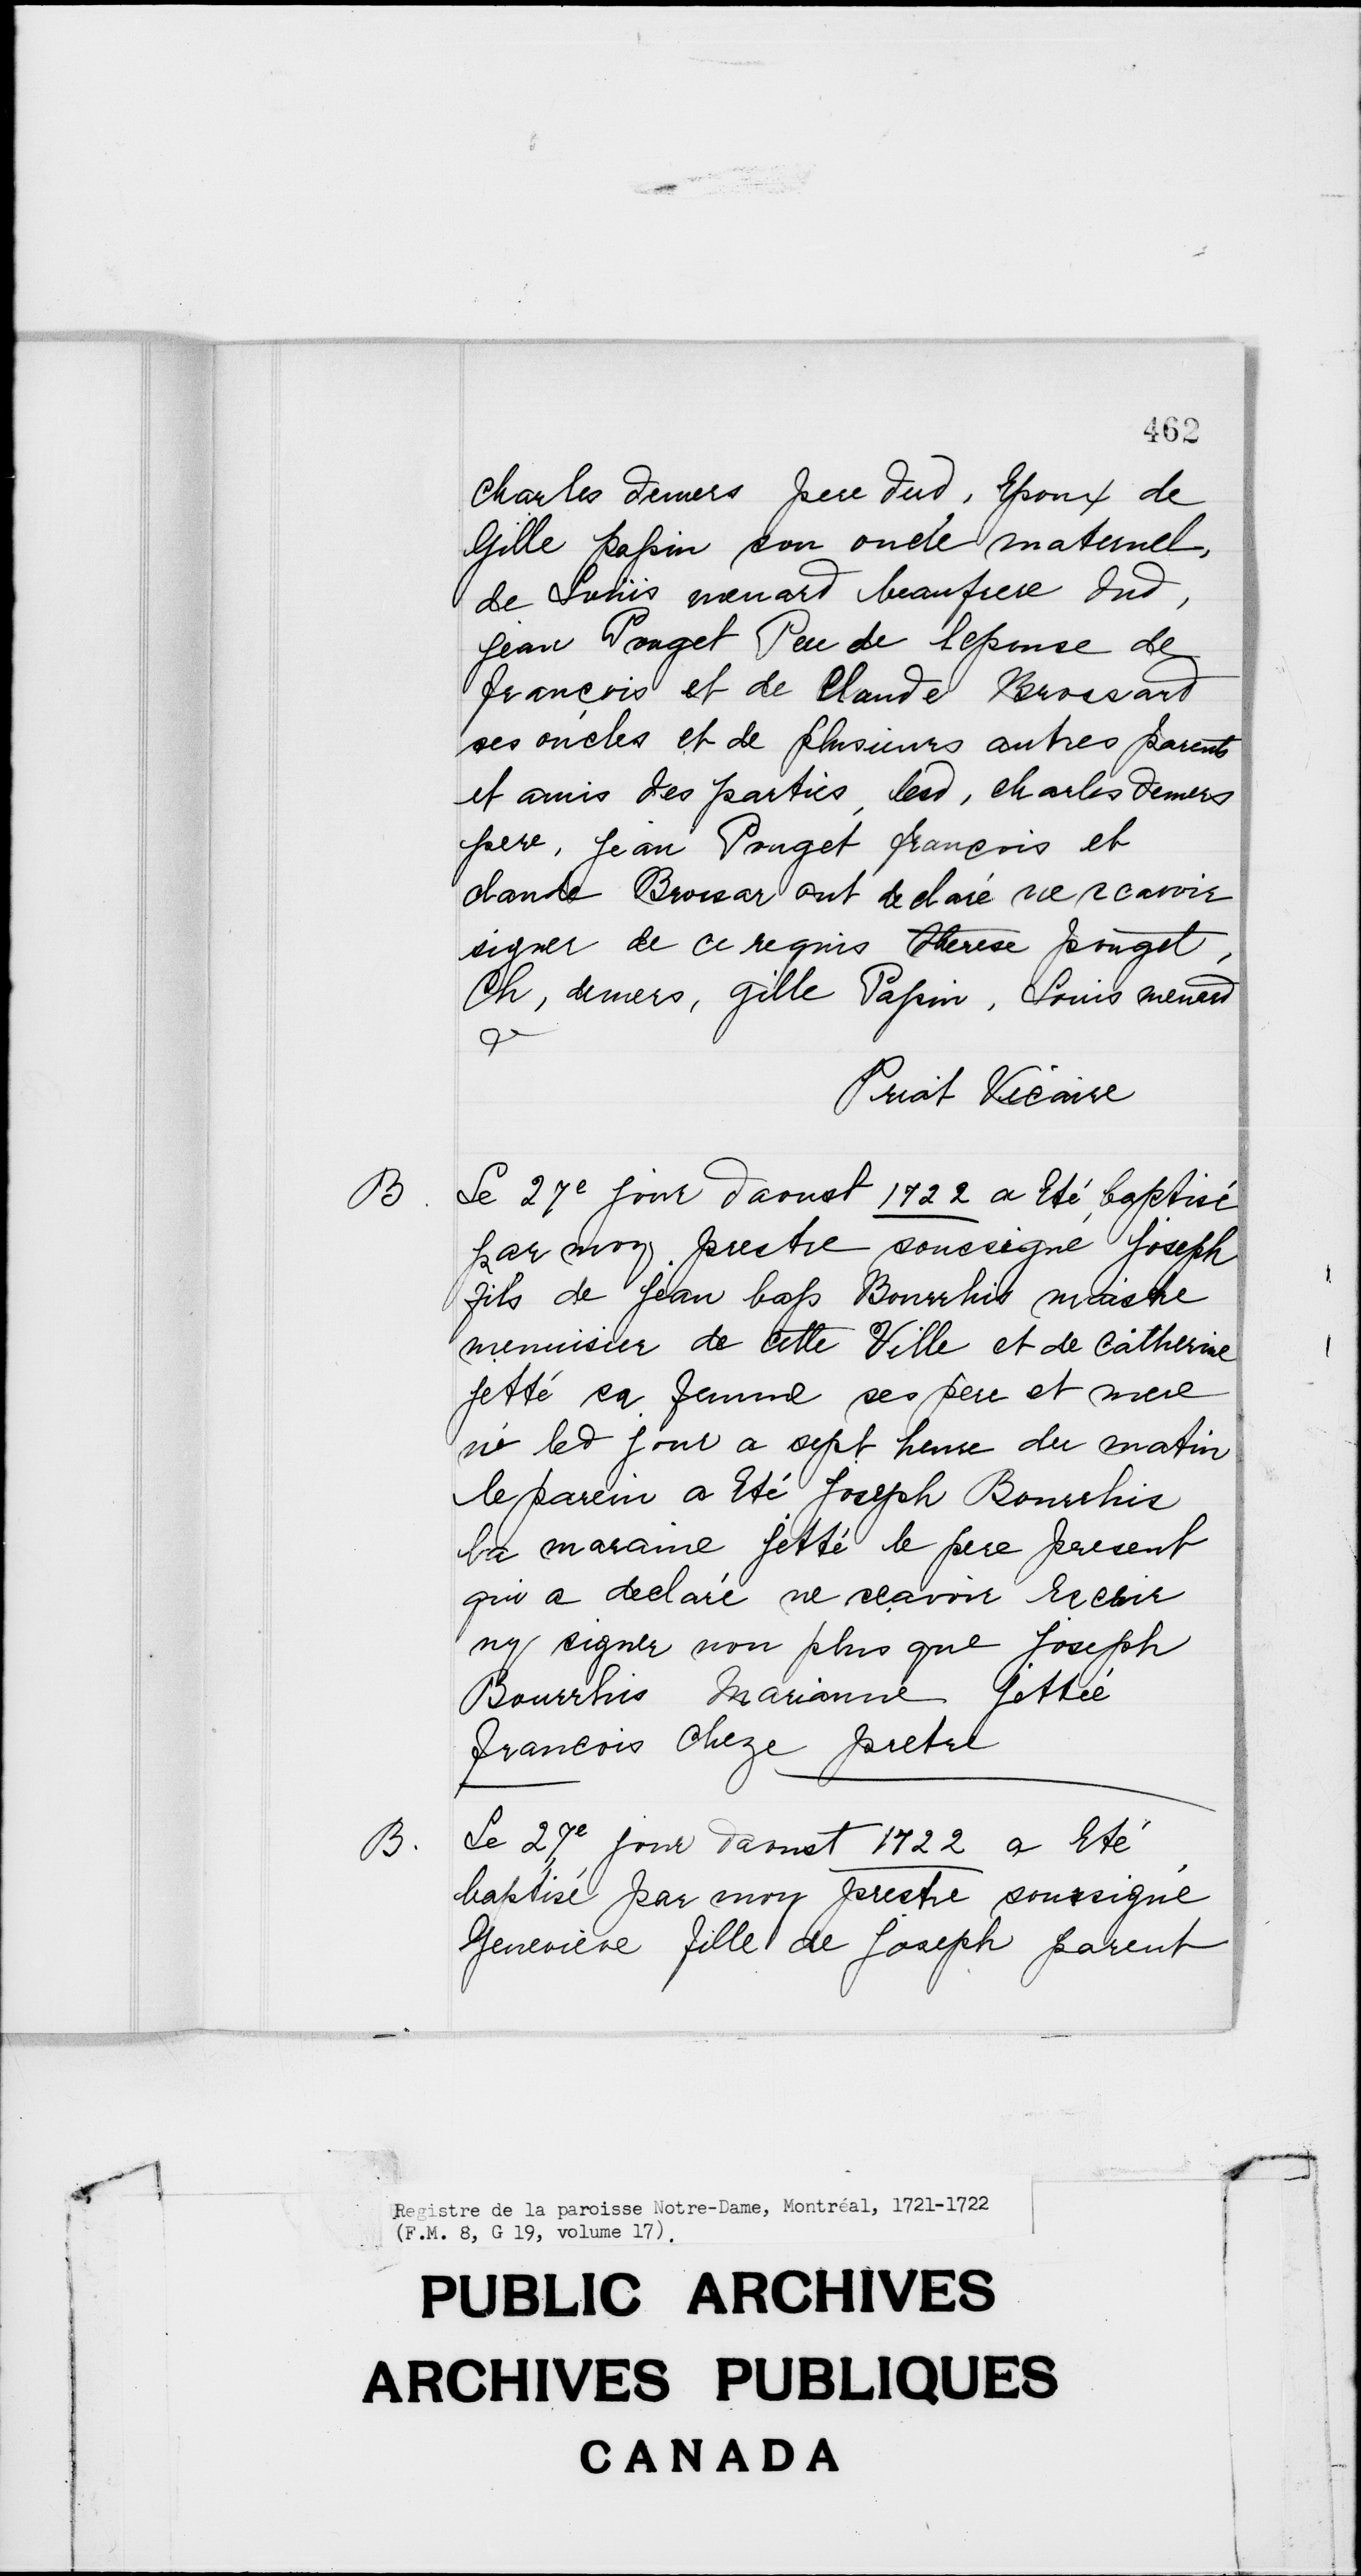 462
charles demers pere dud, Epoux de
Gille papin son oncle maternel,
de Louis menard beaufrere dud,
jean Pouget Pere de lepouse de
françois et de Claude Brossard
ses oncles et de plusieurs autres parents
et amis des parties, lesd, charles demers
pere, jean Pouget françois et
claude Brossar ont declaré ne scavoir
signer de ce requis therese pouget,
Ch, demers, gille Papin, Louis menard
&
Priat Vicaire
B. Le 27e jour daoust 1722 a Eté baptisé
par moy prestre soussigné Joseph
fils de jean bap Bourrhis maistre
menuisier de cette Ville et de catherine
jetté sa femme ses pere et mere
né led jour a sept heure du matin
le parein a Eté Joseph Bourrhis
la maraine jetté le pere present
qui a declaré ne sçavoir Escrir
ny signer non plus que Joseph
Bourrhis Marianne Jettéé
francois Cheze pretre
B. Le 27e jour daoust 1722 a Eté
baptisé par moy prestre soussigné
Geneviève fille de Joseph parent
Registre de la paroisse Notre-Dame, Montréal, 1721-1722
(F.M. 8, G 19, volume 17).
PUBLIC ARCHIVES
ARCHIVES PUBLIQUES
CANADA